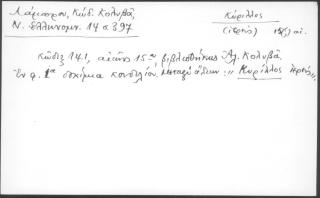 Λάμπρου, Κώδ. Κολυβᾶ,
Ν. Ἑλληνομν. 14 σ 397
Κύριλλος
(ἱερεύς) 15(;) αἰ.
Κῶδιξ 141, αἰῶνος 15ου βιβλιοθήκης Ἀλ. Κολυβᾶ
Ἐν φ. 1α κονδυλίου. μεταξὺ ἄλλων: "Κυρίλλος ἱερεύς,,